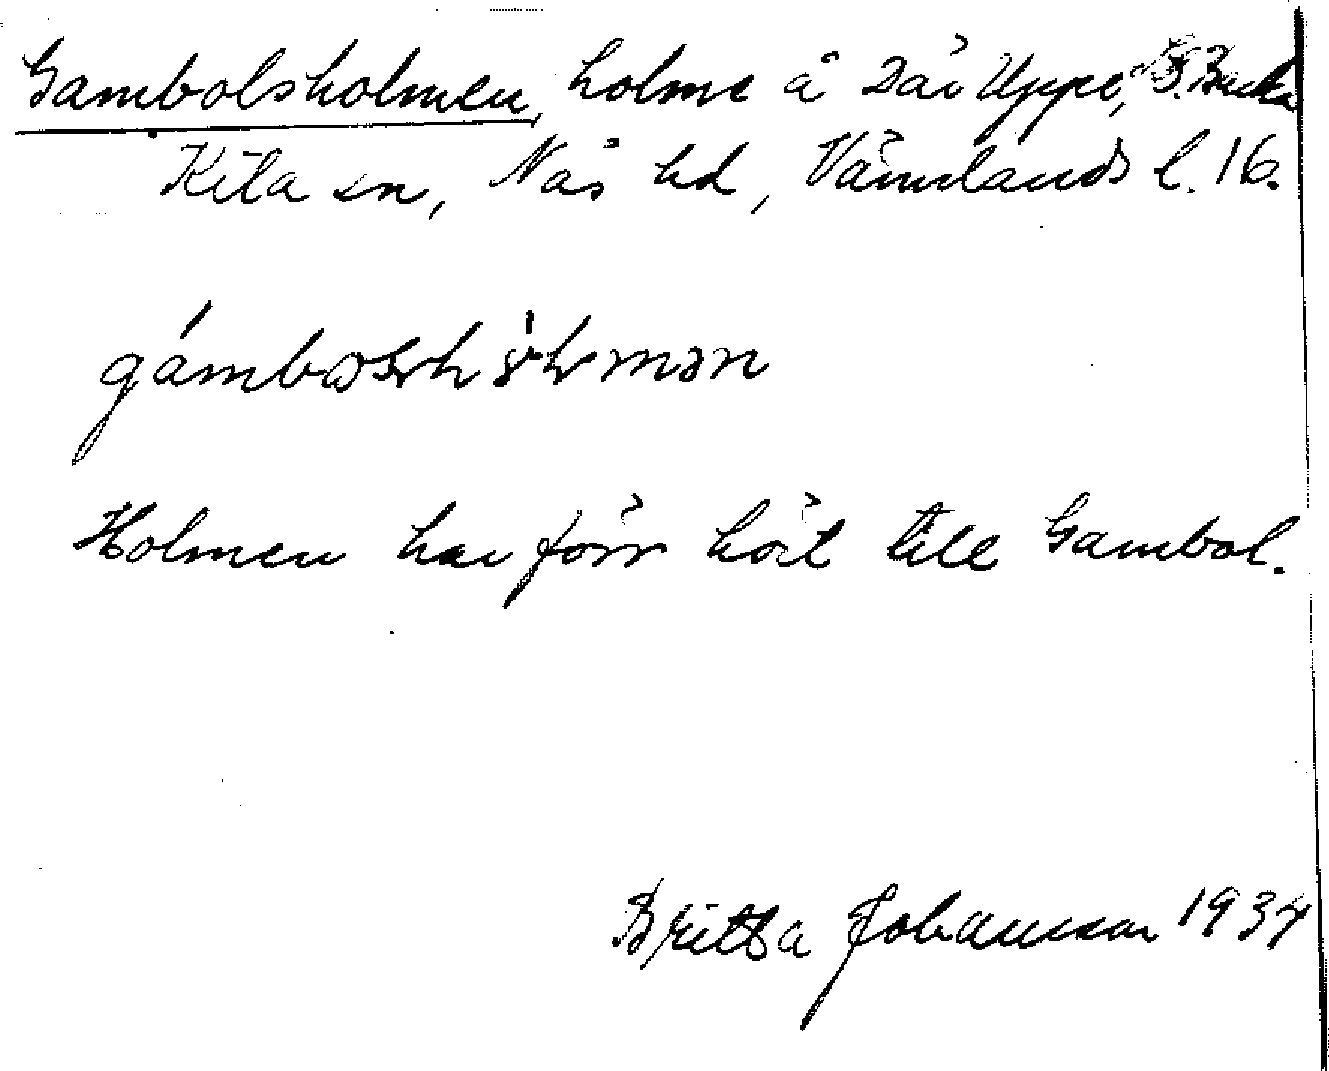 Gambolsholmen, holme å Där Uppe, S. Backa
Kila sn, Näs hd, Värmlands l. 16.
Holmen har förr hört till Gambol.
Britta Johansson 1934